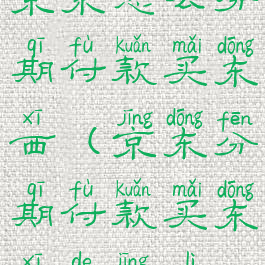 qī fù kuǎn mǎi dōng
期付款买东
xī jīng dōng fēn
西（京东分
qī fù kuǎn mǎi dōng
期付款买东